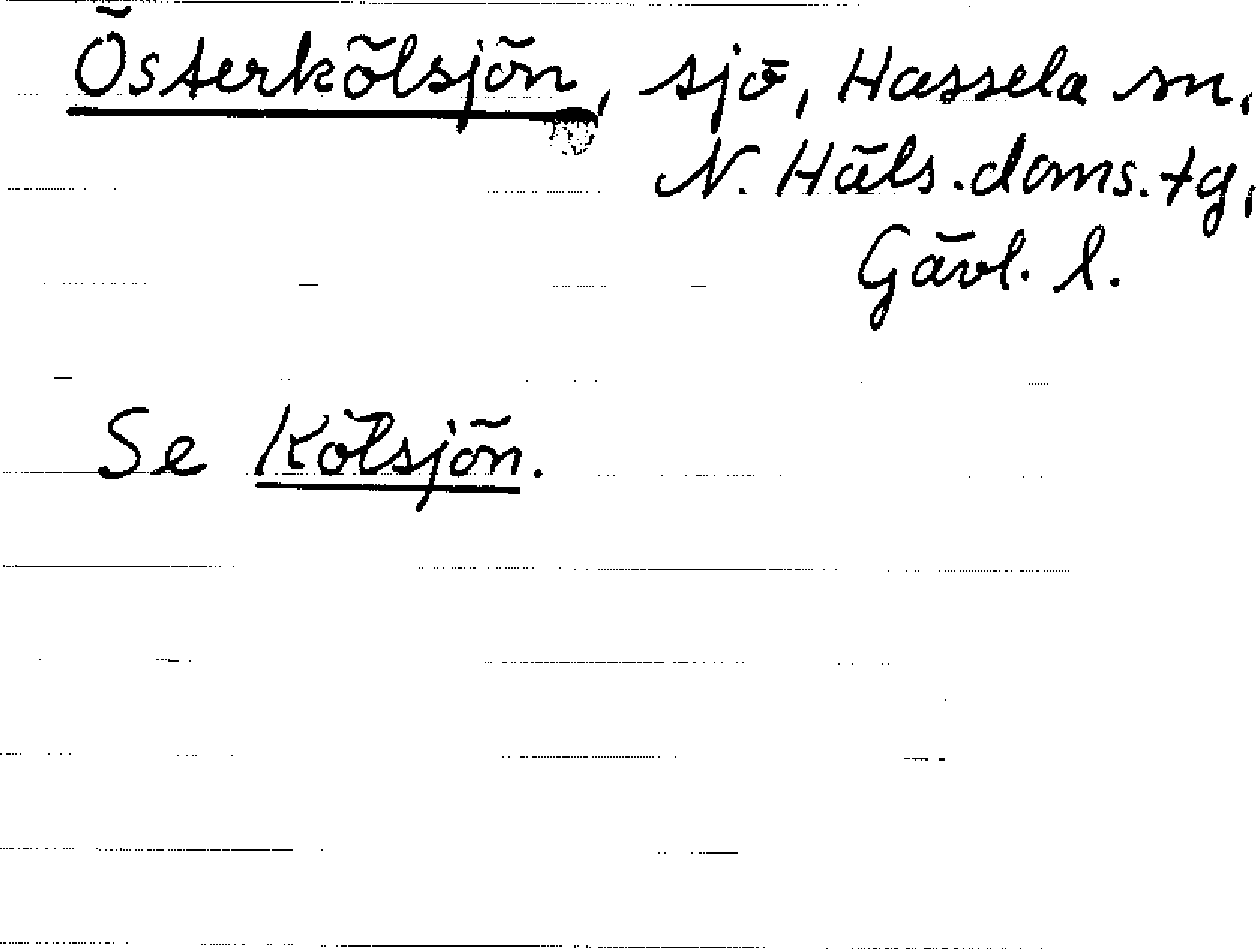 Österkölsjön, sjö, Hassela sn,
N. Häls. doms. tg,
Gävl. l.
Se Kölsjön.